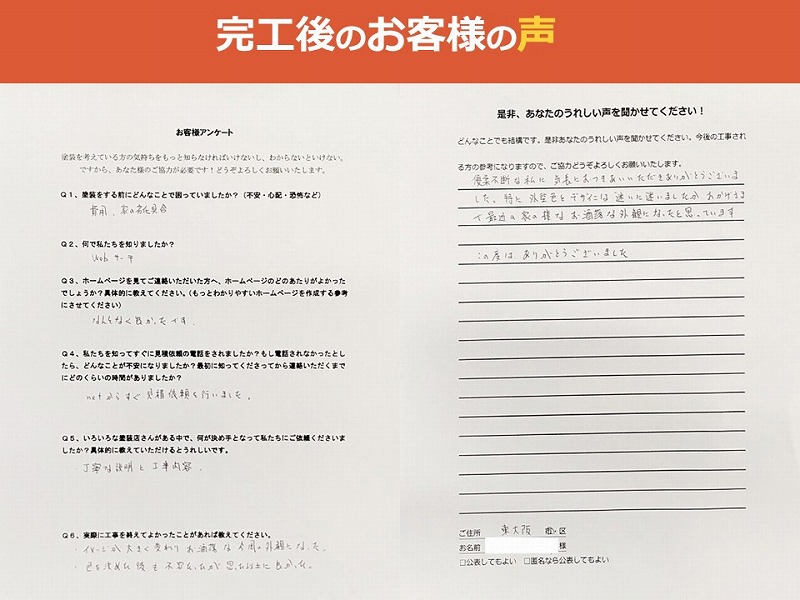 完工後のお客様の声
お客様アンケート
塗装を考えている方の気持ちをもっと知らなければいけないし、わからないといけない。
ですから、あなた様のご協力が必要です！どうぞよろしくお願いいたします。
Q1、塗装をする前にどんなことで困っていましたか？（不安・心配・恐怖など）
費用、家の
Q2、何で私たちを知りましたか？
Web サーチ
Q3、ホームページを見てご連絡いただいた方へ、ホームページのどのあたりがよかった
でしょうか？具体的に教えてください。（もっとわかりやすいホームページを作成する参考
にさせてください）
なんとなく良かったです。
Q4、私たちを知ってすぐに見積依頼の電話をされましたか？もし電話されなかったとし
たら、どんなことが不安になりましたか？最初に知ってくださってから連絡いただくまで
にどのくらいの時間がありましたか？
netからすぐ見積依頼を行いました。
Q5、いろいろな塗装店さんがある中で、何が決め手となって私たちにご依頼くださいま
したか？具体的に教えていただけるとうれしいです。
丁寧な説明と工事内容。
Q6、実際に工事を終えてよかったことがあれば教えてください。
・イメージが大きく変わりお洒落な外観になった。
・色を決めた後も不安だったが思った以上に良かった。
是非、あなたのうれしい声を聞かせてください！
どんなことでも結構です。是非あなたのうれしい声を聞かせてください。今後の工事され
る方の参考になりますので、ご協力どうぞよろしくお願いいたします。
優柔不断な私に気長におつきあいいただきありがとうございま
した。特に外壁色とデザインは迷いに迷いましたがおかげさま
で最近の家の様なお洒落な外観になったと思っています
この度はありがとうございました
ご住所 東大阪 市・区
お名前 様
□公表してもよい □匿名なら公表してもよい